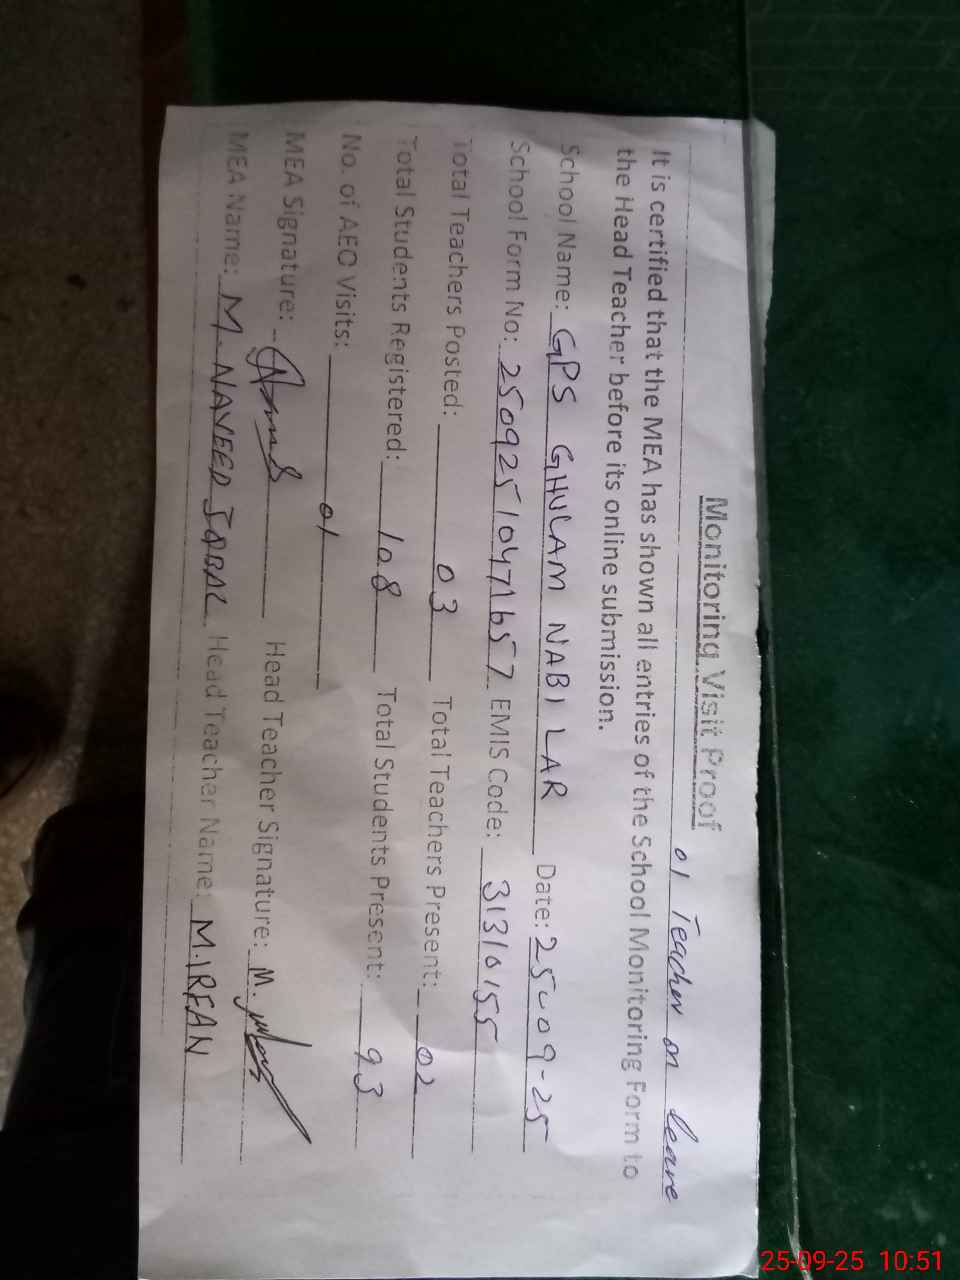 Monitoring Visit Proof
01 Teacher on leave
It is certified that the MEA has shown all entries of the School Monitoring Form to
the Head Teacher before its online submission.
School Name: GPS GHULAM NABI LAR Date: 25-09-25
School Form No: 25092510471657 EMIS Code: 31310155
Total Teachers Posted: 03 Total Teachers Present: 02
Total Students Registered: 108 Total Students Present: 93
No. of AEO Visits: 01
MEA Signature: Head Teacher Signature: M.
MEA Name: M. NAVEED IQBAL Head Teacher Name: M. IRFAN
25-09-25 10:51